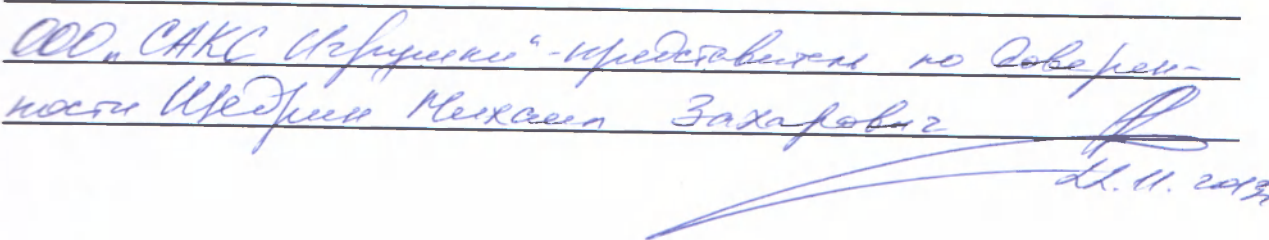 ООО „САКС Игрушки“ - представитель по доверен-
ности Щедрин Михаил Захарович
22.11.2019